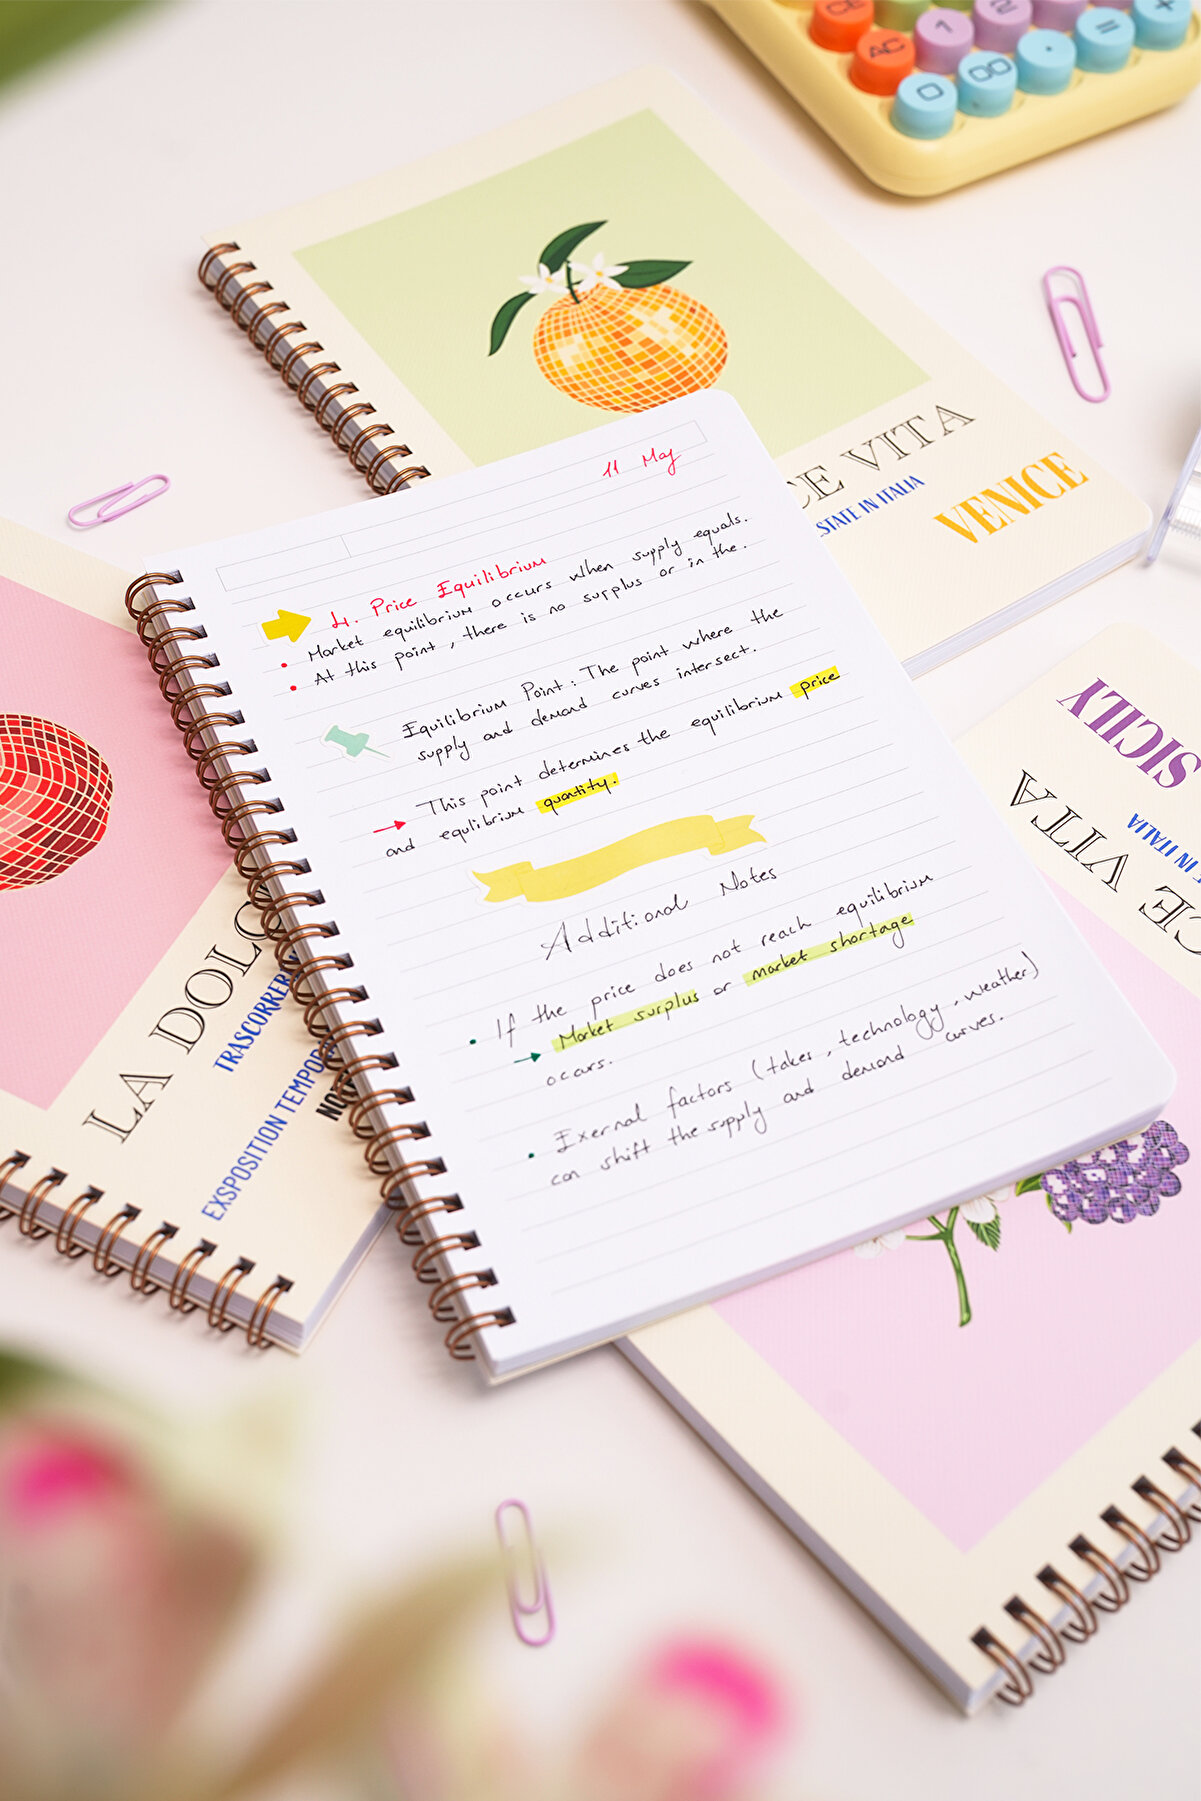 CE
AC
1
2
0
00
.
=
+
CE VITA
STATE IN ITALIA
VENICE
11 May
4. Price Equilibrium
• Market equilibrium occurs when supply equals.
• At this point, there is no surplus or in the.
Equilibrium Point: The point where the
supply and demand curves intersect.
→ This point determines the equilibrium price
and equlibrium quantity.
Additional Notes
• If the price does not reach equilibrium
→ Market surplus or market shortage
occurs.
• Exernal factors (takes, technology, weather)
can shift the supply and demand curves.
LA DOLC
TRASCORRERE
EXSPOSITION TEMPOR
NOT
SICILY
IN ITALIA
CE VITA